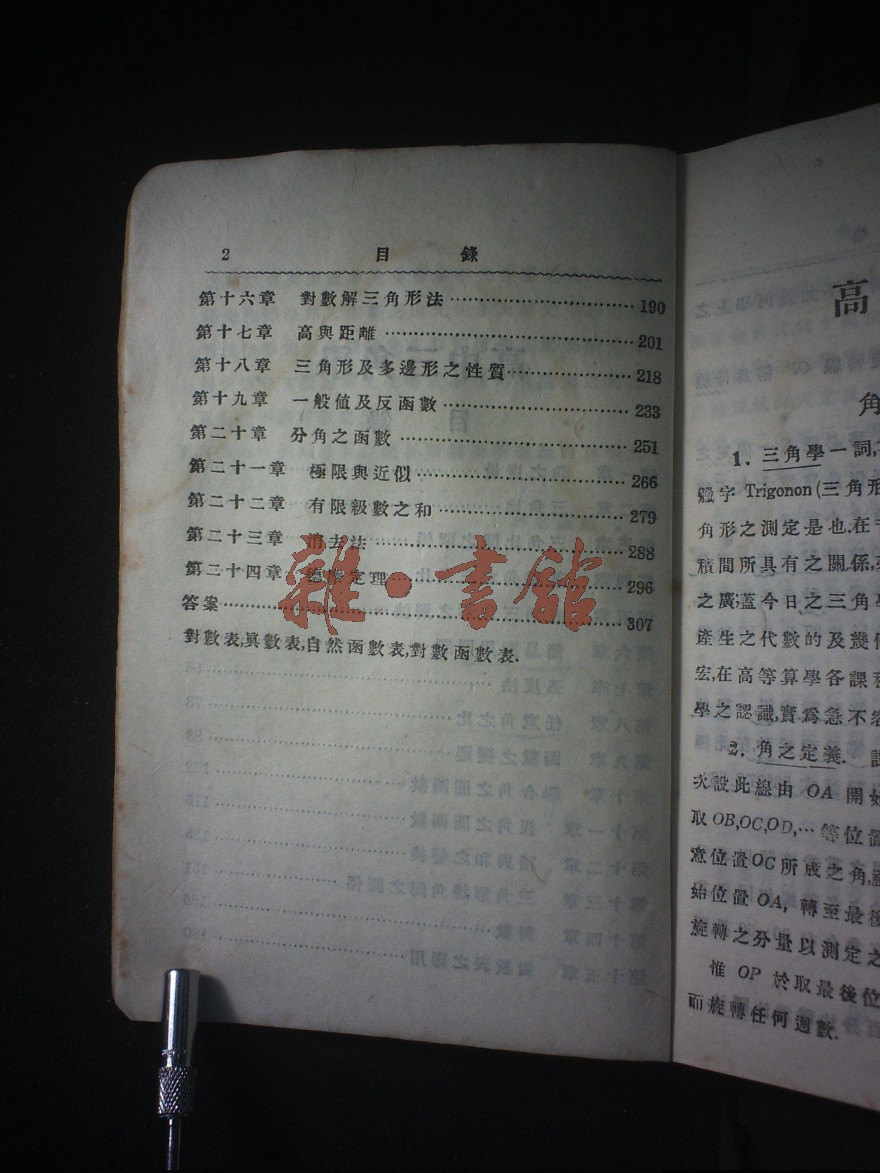 2 目 錄
第十六章 對數解三角形法 190
第十七章 高與距離 201
第十八章 三角形及多邊形之性質 218
第十九章 一般值及反函數 233
第二十章 分角之函數 251
第二十一章 極限與近似 266
第二十二章 有限級數之和 279
第二十三章 消去法 288
第二十四章 理 296
答案 307
對數表,眞數表,自然函數表,對數函數表.
雜·書館
高
角
1. 三角學一詞,
字 Trigonon(三角形
角形之測定是也.在
積間所具有之關係,
之廣,蓋今日之三角學
產生之代數的及幾何
宏,在高等算學各課程
學之認識,實爲急不容
2. 角之定義. 設
次設此線由 OA 開始
取OB,OC,OD,…等位置
意位置OC所成之角,
始位置OA, 轉至最後
旋轉之分量以測定之
惟 OP 於取最後位
而旋轉任何週數.